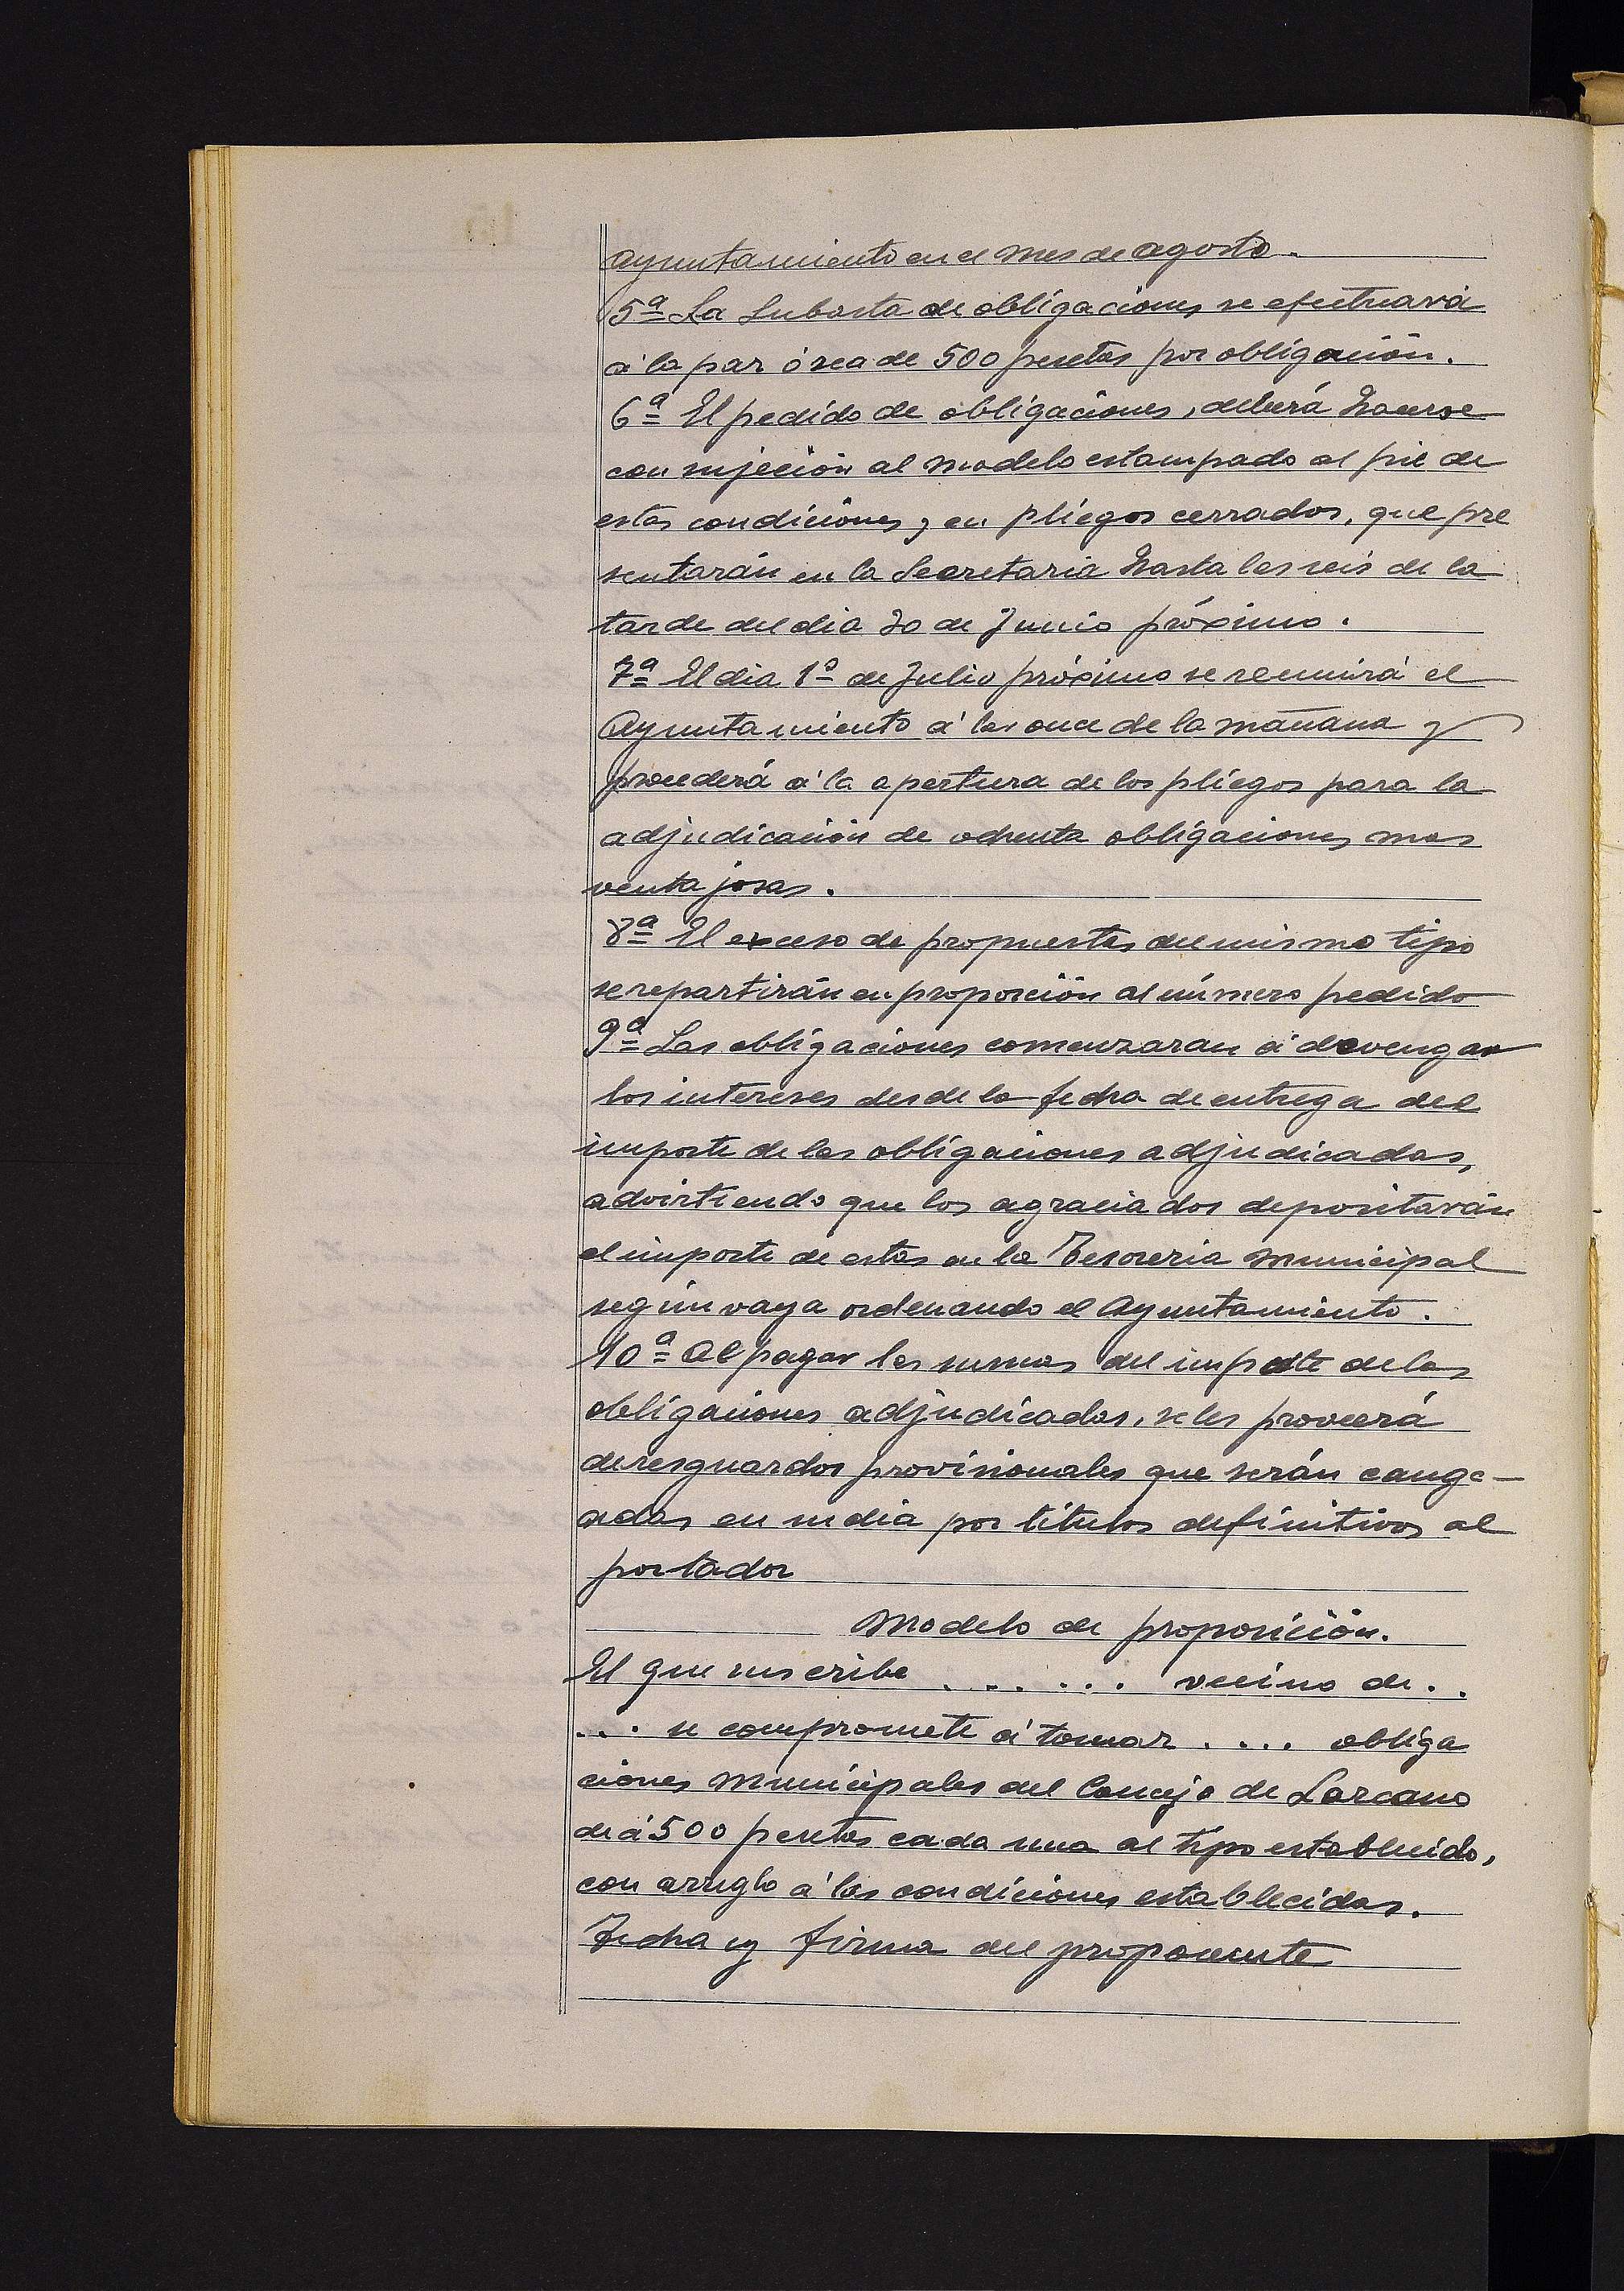 Ayuntamiento en el mes de agosto.
5ª La Subasta de obligaciones se efectuará
á la par ó sea de 500 pesetas por obligación.
6ª El pedido de obligaciones, deberá hacerse
con sujeción al modelo estampado al pie de
estas condiciones y en pliegos cerrados, que pre
sentarán en la Secretaria hasta las seis de la
tarde del dia 30 de Junio próximo.
7ª El dia 1º de Julio próximo se reunirá el
Ayuntamiento á las once de la mañana y
procederá á la apertura de los pliegos para la
adjudicación de ochenta obligaciones mas
ventajosas.
8ª El exceso de propuestas del mismo tipo
se repartirán en proporción al número pedido
9ª Las obligaciones comenzaran á devengar
los intereses desde la fecha de entrega del
importe de las obligaciones adjudicadas,
advirtiendo que los agraciados depositarán
el importe de estas en la Tesoreria municipal
según vaya ordenando el Ayuntamiento.
10ª Al pagar las sumas del importe de las
obligaciones adjudicadas, se les proveerá
de resguardos provisionales que serán cange-
adas en su dia por titulos definitivos al
portador
Modelo de proposición.
El que suscribe ...... vecino de ..
... se compromete á tomar .... obliga
ciones Municipales del Concejo de Lazcano
de á 500 pesetas cada una al tipo establecido,
con arreglo á las condiciones establecidas.
Fecha y firma del proponente